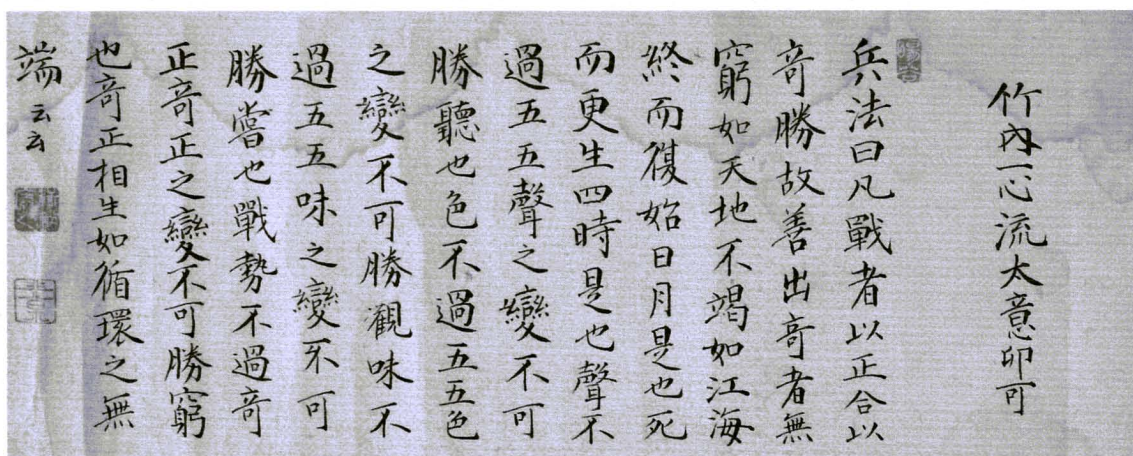 竹内一心流太意卯可
兵法曰凡戰者以正合以
奇勝故善出奇者無
窮如天地不竭如江海
終而復始日月是也死
而更生四時是也聲不
過五五聲之變不可
勝聽也色不過五五色
之變不可勝觀味不
過五五味之變不可
勝嘗也戰勢不過奇
正奇正之變不可勝窮
也奇正相生如循環之無
端云云